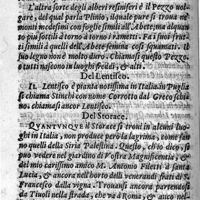 L'altra sorte degli alberi resiniferi è il Pezzo vol-
gare, del qual parla Plinio, il quale pure si trova ne'
monti medesimi con foglie simili all'Abete, ma alquan-
to più sparse à torno à torno i rametti. Fa i suoi frut-
ti simili à quelli dell'Abete femina così squamati. Il
suo legno non è molto duro. Chiamasi questo Pezzo,
e tutti nascono in luoghi freddi, & alti.
Del Lentisco.
IL Lentisco è pianta notissima in Italia. in Puglia
si chiama Stinchi con nome Corrotto dal Greco schi-
no. chiamasi ancor Lentisco.
Del Storace.
QUANTUNQUE il Storace si trovi in alcuni luo-
ghi in Italia, non produce però la lagrima, come fan-
no quelli della Siria Palestina. Questo, ch'io dico, si
può vedere nel giardino di Vostra Magnificentia, &
del mio carissimo amico M. Antonio Pileri à Santa
Lucia, & ancora nell'horto delli venerandi frati di S.
Francesco dalla vigna. Trovansi ancora partendosi
da Tivoli nella strada, che va à Roma, & ancor nel-